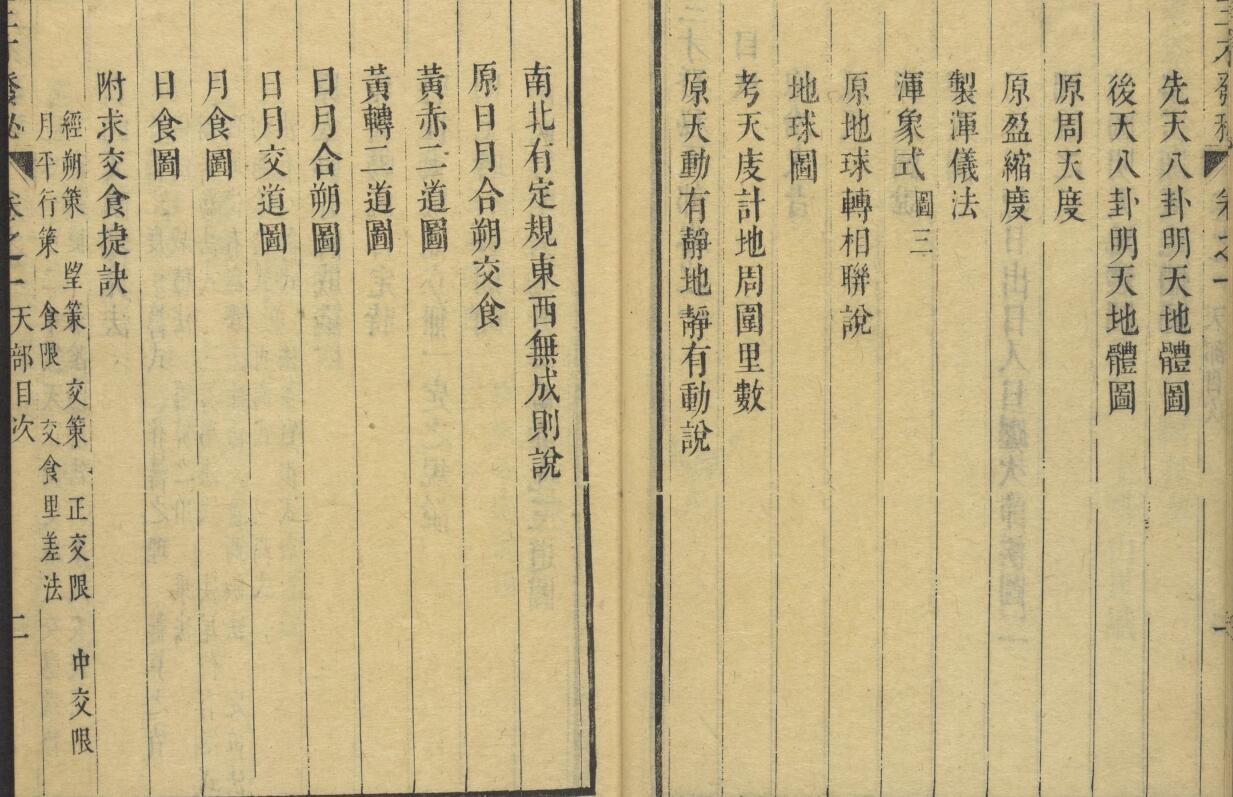 三才發秘 卷之一 一
先天八卦明天地體圖
後天八卦明天地體圖
原周天度
原盈縮度
製渾儀法
渾象式 圖三
原地球轉相聯說
地球圖
考天度計地周圍里數
原天動有靜地靜有動說
南北有定規東西無成則說
原日月合朔交食
黃赤二道圖
黃轉二道圖
日月合朔圖
日月交道圖
月食圖
日食圖
附求交食捷訣
經朔策 望策 交策 正交限 中交限
月平行策 食限 交食里差法
三才發秘 卷之一 天部目次 二